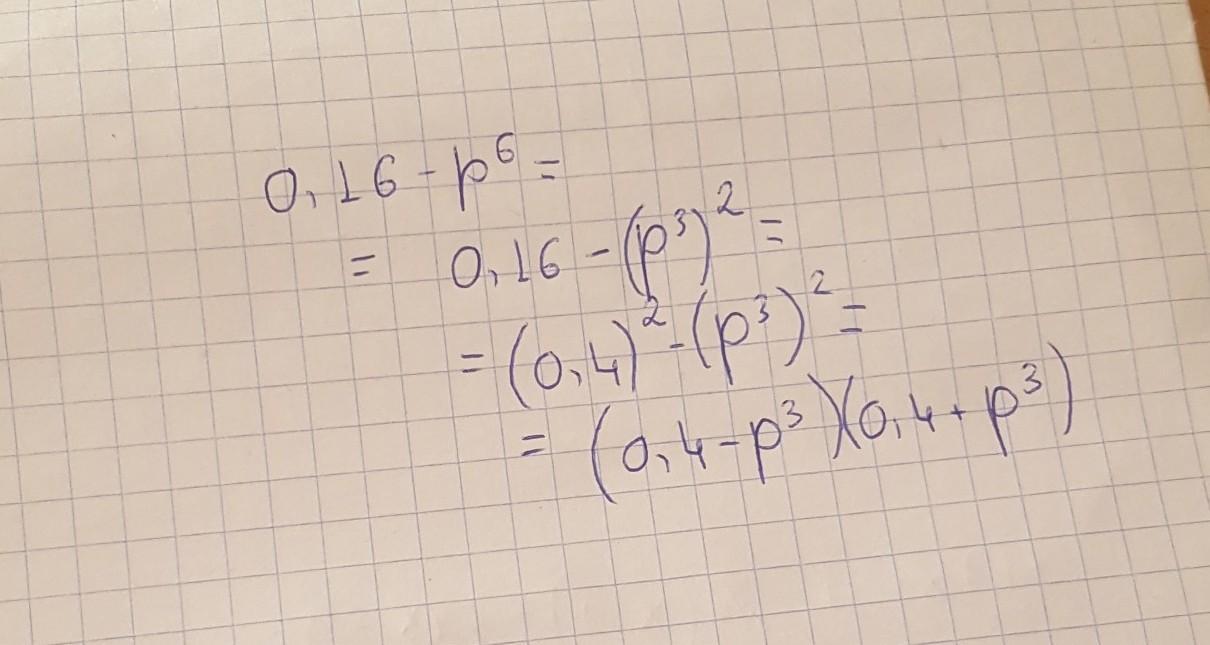 0,16 - p⁶ =
= 0,16 - (p³)² =
= (0,4)² - (p³)² =
= (0,4 - p³)(0,4 + p³)